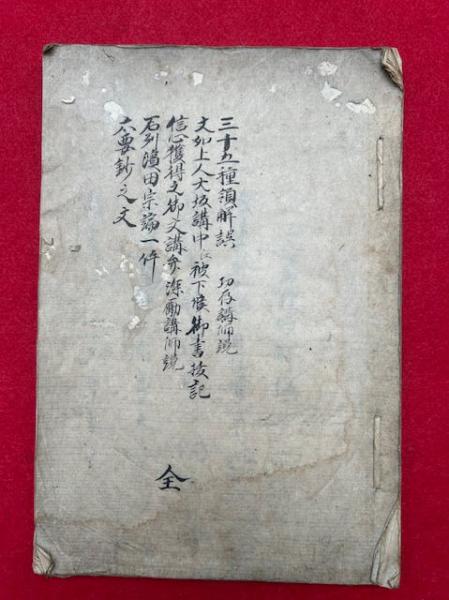 三十五種領解誤　功存講師説
文如上人大坂講中江被下候御書抜記
信心獲得之御文講弁深励講師説
石州濱田宗論一件
六要鈔之文
全